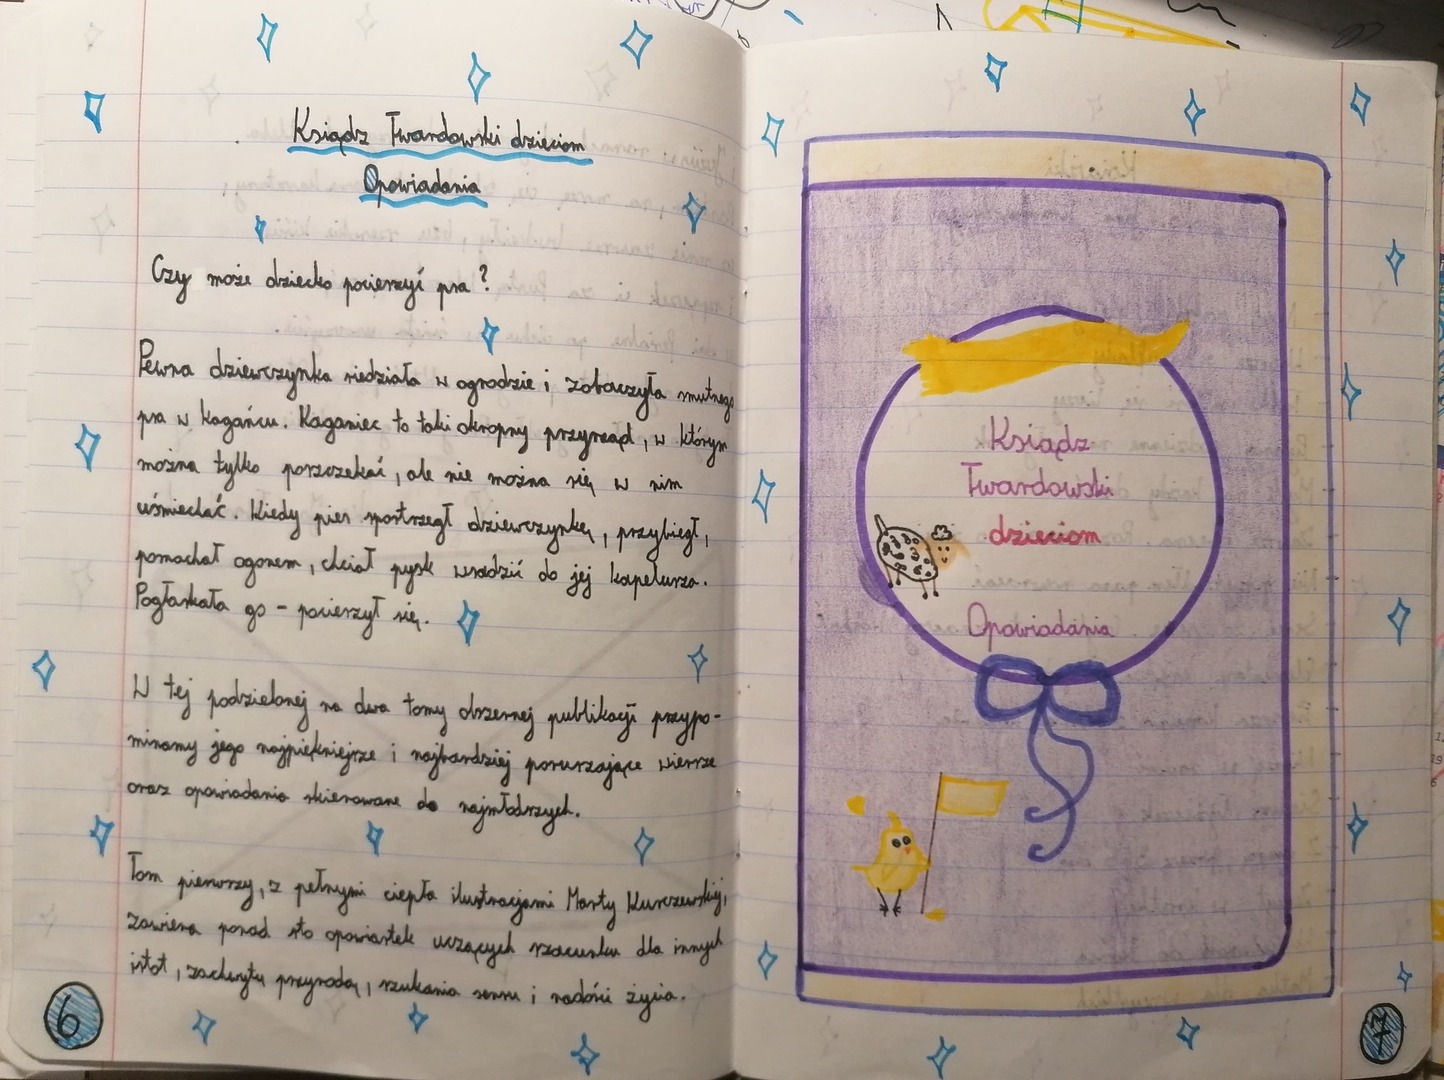 Ksiądz Twardowski dzieciom
Opowiadania
Czy może dziecko pocieszyć psa?
Pewna dziewczynka siedziała w ogrodzie i zobaczyła smutnego
psa w kagańcu. Kaganiec to taki okropny przyrząd, w którym
można tylko poszczekać, ale nie można się w nim
uśmiechać. Kiedy pies spostrzegł dziewczynkę, przybiegł,
pomachał ogonem, chciał pysk wsadzić do jej kapelusza.
Pogłaskała go - pocieszył się.
W tej podzielonej na dwa tomy obszernej publikacji przypo-
minamy jego najpiękniejsze i najbardziej poruszające wiersze
oraz opowiadania skierowane do najmłodszych.
Tom pierwszy, z pełnymi ciepła ilustracjami Marty Kurczewskiej,
zawiera ponad sto opowiastek uczących szacunku dla innych
istot, zachwytu przyrodą, szukania sensu i radości życia.
6
Ksiądz
Twardowski
dzieciom
Opowiadania
7